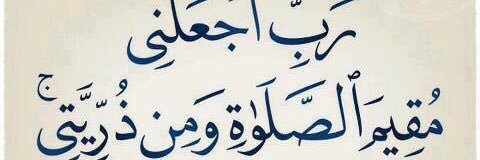 رَبِّ ٱجْعَلْنِى
مُقِيمَ ٱلصَّلَوٰةِ وَمِن ذُرِّيَّتِى ۚ